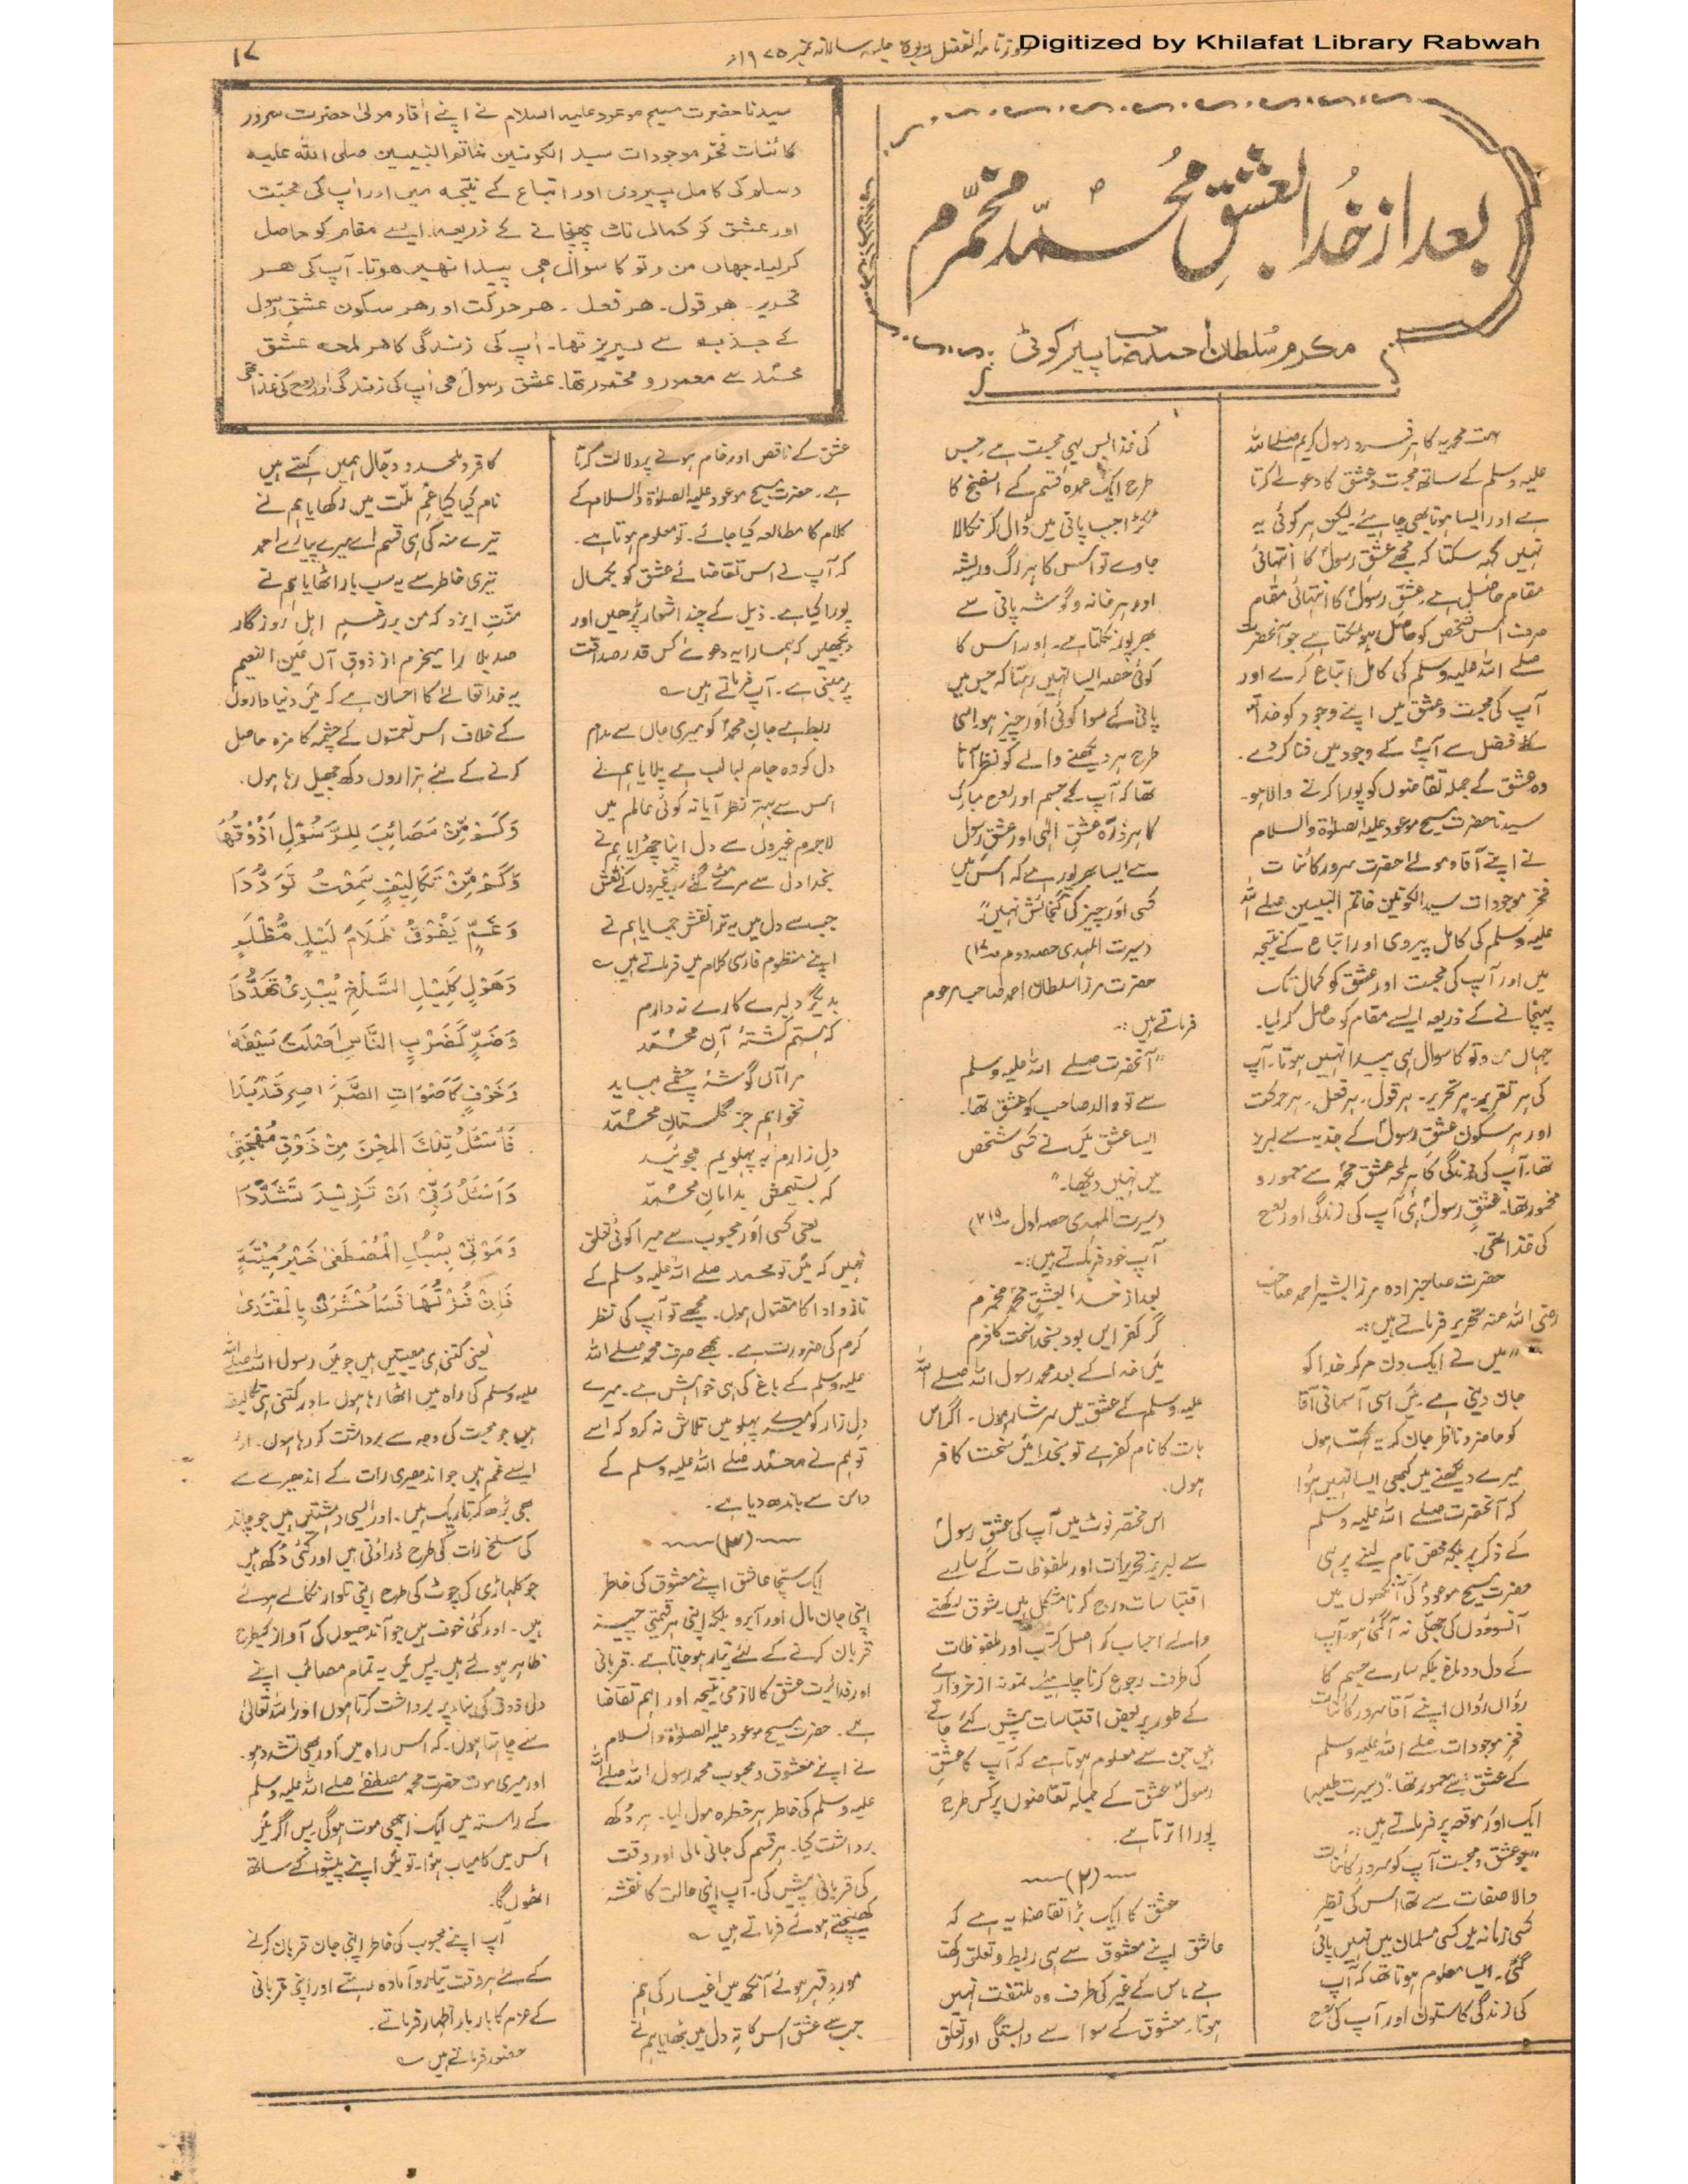 Digitized by Khilafat Library Rabwah
روزنامہ الفضل ربوہ جلسہ سالانہ نمبر ۱۹۷۵ء
۱۷
بعد از خدا بعشقِ محمّدؐ مخمّرم
مکرم سلطان احمد صاحب پیرکوٹی
سیدنا حضرت مسیح موعود علیہ السلام نے اپنے آقا و مولیٰ حضرت سرور
کائنات فخر موجودات سید الکونین خاتم النبیین صلی اللہ علیہ
وسلم کی کامل پیروی اور اتباع کے نتیجہ میں اور آپ کی محبّت
اور عشق کو کمال تک پہنچانے کے ذریعہ ایسے مقام کو حاصل
کرلیا۔ جہاں من و تو کا سوال ہی پیدا نہیں ہوتا۔ آپ کی ہر
تحریر۔ ہر قول۔ ہر فعل۔ ہر حرکت اور ہر سکون عشقِ رسول
کے جذبہ سے لبریز تھا۔ آپ کی زندگی کا ہر لمحہ عشق
محمّد سے معمور و مخمور تھا۔ عشق رسولؐ ہی آپ کی زندگی اور روح کی غذا تھی
امت محمدیہ کا ہر فرد رسول کریم صلے اللہ
علیہ وسلم کے ساتھ محبت و عشق کا دعوےٰ کرتا
ہے اور ایسا ہونا بھی چاہیئے۔ لیکن ہر کوئی یہ
نہیں کہہ سکتا کہ مجھے عشق رسولؐ کا انتہائی
مقام حاصل ہے۔ عشق رسولؐ کا انتہائی مقام
صرف اس شخص کو حاصل ہو سکتا ہے جو آنحضرت
صلے اللہ علیہ وسلم کی کامل اتباع کرے اور
آپ کی محبت و عشق میں اپنے وجود کو خدا
کے فضل سے آپ کے وجود میں فنا کردے۔
وہ عشق کے جملہ تقاضوں کو پورا کرنے والا ہو۔
سیدنا حضرت مسیح موعود علیہ الصلوٰۃ والسلام
نے اپنے آقا و مولےٰ حضرت سرور کائنات
فخر موجودات سید الکونین خاتم النبیین صلے اللہ
علیہ وسلم کی کامل پیروی اور اتباع کے نتیجہ
میں اور آپ کی محبت اور عشق کو کمال تک
پہنچانے کے ذریعہ ایسے مقام کو حاصل کرلیا۔
جہاں من و تو کا سوال ہی پیدا نہیں ہوتا۔ آپ
کی ہر تقریر۔ ہر تحریر۔ ہر قول۔ ہر فعل۔ ہر حرکت
اور ہر سکون عشقِ رسولؐ کے جذبہ سے لبریز
تھا۔ آپ کی زندگی کا ہر لمحہ عشق محمدؐ سے معمور و
مخمور تھا۔ عشقِ رسولؐ ہی آپ کی زندگی اور روح
کی غذا تھی۔
حضرت صاحبزادہ مرزا بشیر احمد صاحب
رضی اللہ عنہ تحریر فرماتے ہیں:۔
"میں نے ایک دن مر کر خدا کو
جان دینی ہے۔ میَں اسی آسمانی آقا
کو حاضر و ناظر جان کر یہ کہتا ہوں
میرے دیکھنے میں کبھی ایسا نہیں ہوا
کہ آنحضرت صلے اللہ علیہ وسلم
کے ذکر پر بلکہ محض نام لینے پر ہی
حضرت مسیح موعودؑ کی آنکھوں میں
آنسوؤں کی جھلّی نہ آگئی ہو۔ آپ
کے دل و دماغ بلکہ سارے جسم کا
رواں رواں اپنے آقا سرور کائنات
فخر موجودات صلے اللہ علیہ وسلم
کے عشق سے معمور تھا۔" (سیرت طیبہ)
ایک اَور موقعہ پر فرماتے ہیں:۔
"جو عشق و محبت آپ کو سرور کائنات
والا صفات سے تھا اس کی نظیر
کسی زمانہ میں کسی مسلمان میں نہیں پائی
گئی۔ ایسا معلوم ہوتا تھا کہ آپ
کی زندگی کا ستون اور آپ کی روح
کی غذا بس یہی محبت ہے جس
طرح ایک عمدہ قسم کے اسفنج کا
ٹکڑا جب پانی میں ڈال کر نکالا
جاوے تو اس کا ہر رگ و ریشہ
اور ہر خانہ و گوشہ پانی سے
بھرپور نکلتا ہے۔ اور اس کا
کوئی حصہ ایسا نہیں رہتا کہ جس میں
پانی کے سوا کوئی اَور چیز ہو۔ اسی
طرح ہر دیکھنے والے کو نظر آتا
تھا کہ آپ کے جسم اور روح مبارک
کا ہر ذرّہ عشقِ الٰہی اور عشقِ رسول
سے ایسا بھرپور ہے کہ اس میں
کسی اَور چیز کی گنجائش نہیں"۔
(سیرت المہدی حصہ دوم)
حضرت مرزا سلطان احمد صاحب مرحوم
فرماتے ہیں:۔
"آنحضرت صلے اللہ علیہ وسلم
سے تو والد صاحب کو عشق تھا۔
ایسا عشق میَں نے کسی شخص
میں نہیں دیکھا۔"
(سیرت المہدی حصہ اول ص۲۱۹)
آپ خود فرماتے ہیں:۔
بعد از خدا بعشقِ محمدؐ مخمرم
گر کفر ایں بود بخدا سخت کافرم
میَں خدا کے بعد محمد رسول اللہ صلے اللہ
علیہ وسلم کے عشق میں سرشار ہوں۔ اگر اس
بات کا نام کفر ہے تو بخدا میَں سخت کافر
ہوں۔
اس مختصر نوٹ میں آپ کی عشقِ رسولؐ
سے لبریز تحریرات اور ملفوظات کے سارے
اقتباسات درج کرنا مشکل ہیں۔ شوق رکھنے
والے احباب کو اصل کتب اور ملفوظات
کی طرف رجوع کرنا چاہیئے۔ نمونہ از خروارے
کے طور پر بعض اقتباسات پیش کئے جاتے
ہیں جن سے معلوم ہوتا ہے کہ آپ کا عشقِ
رسولؐ عشق کے جملہ تقاضوں پر کس طرح
پورا اترتا ہے۔
(۲)
عشق کا ایک بڑا تقاضا یہ ہے کہ
عاشق اپنے معشوق سے ہی ربط و تعلق رکھتا
ہے اس کے غیر کی طرف وہ ملتفت نہیں
ہوتا۔ معشوق کے سوا سے وابستگی اور تعلق
عشق کے ناقص اور خام ہونے پر دلالت کرتا
ہے۔ حضرت مسیح موعود علیہ الصلوٰۃ والسلام کے
کلام کا مطالعہ کیا جائے۔ تو معلوم ہوتا ہے۔
کہ آپ نے اس تقاضائے عشق کو بکمال
پورا کیا ہے۔ ذیل کے چند اشعار پڑھیں اور
دیکھیں کہ ہمارا یہ دعوےٰ کس قدر صداقت
پر مبنی ہے۔ آپ فرماتے ہیں؎
ربط ہے جانِ محمدؐ کو میری جاں سے مدام
دل کو وہ جام لبالب ہے پلایا ہم نے
اس سے بہتر نظر آیا نہ کوئی عالم میں
لاجرم غیروں سے دل اپنا چھڑایا ہم نے
بخدا دل سے مرے مٹ گئے سب غیروں کے نقش
جب سے دل میں یہ ترا نقش جمایا ہم نے
اپنے منظوم فارسی کلام میں فرماتے ہیں؎
بدیگر دلبرے کارے ندارم
کہ ہستم کشتۂ آنِ محمّدؐ
مرا آں گوشۂ چشمے بباید
نخواہم جز گلستانِ محمّدؐ
دلِ زارم بہ پہلویم مجوئید
کہ بستیمش بدامانِ محمّدؐ
یعنی کسی اَور محبوب سے میرا کوئی تعلق
نہیں کہ میَں تو محمد صلے اللہ علیہ وسلم کے
ناز و ادا کا مقتول ہوں۔ مجھے تو آپ کی نظر
کرم کی ضرورت ہے۔ مجھے صرف محمد صلے اللہ
علیہ وسلم کے باغ کی ہی خواہش ہے۔ میرے
دل زار کو میرے پہلو میں تلاش نہ کرو کہ اسے
تو ہم نے محمّد صلے اللہ علیہ وسلم کے
دامن سے باندھ دیا ہے۔
(۳)
ایک سچا عاشق اپنے معشوق کی خاطر
اپنی جان مال اور آبرو بلکہ اپنی ہر قیمتی چیز
قربان کرنے کے لئے تیار ہو جاتا ہے۔ قربانی
اور فدائیت عشق کا لازمی نتیجہ اور اہم تقاضا
ہے۔ حضرت مسیح موعود علیہ الصلوٰۃ والسلام
نے اپنے معشوق و محبوب محمد رسول اللہ صلے اللہ
علیہ وسلم کی خاطر ہر خطرہ مول لیا۔ ہر دُکھ
برداشت کیا۔ ہر قسم کی جانی مالی اور وقت
کی قربانی پیش کی۔ آپ اپنی حالت کا نقشہ
کھینچتے ہوئے فرماتے ہیں؎
موردِ قہر ہوئے آنکھ میں اغیار کی ہم
جب سے عشق اس کا تہِ دل میں بٹھایا ہم نے
کافر و ملحد و دجّال ہمیں کہتے ہیں
نام کیا کیا غمِ ملّت میں رکھایا ہم نے
تیرے منہ کی ہی قسم اے میرے پیارے احمد
تیری خاطر سے یہ سب بار اٹھایا ہم نے
منّتِ ایزد کہ من برزغمِ اہلِ روزگار
صد بلا را میخرم از ذوقِ آں عین النعیم
یہ خدا تعالےٰ کا احسان ہے کہ میَں دنیا داروں
کے خلاف اس نعمتوں کے چشمہ کا مزہ حاصل
کرنے کے لئے ہزاروں دکھ جھیل رہا ہوں۔
وَكَمْ مِّنْ مَصَائِبَ لِلرَّسُوْلِ اَذُوْقُهَا
وَكَمْ مِّنْ تَكَالِيْفٍ سَئِمْتُ تَوَدُّدَا
وَغَمٍّ يَفُوْقُ ظَلَامَ لَيْلٍ مُّظْلِمٍ
وَهَوْلٍ كَلَيْلِ السَّلْخِ يُبْدِىْ تَهَدُّدَا
وَضُرٍّ كَضَرْبِ الْفَاْسِ اَصْلَتَ سَيْفَهُ
وَخَوْفٍ كَاَصْوَاتِ الصَّرَاصِرِ قَدْ بَدَا
فَاَسْئَلُ تِلْكَ الْمِحَنَ مِنْ ذَوْقِ مُهْجَتِىْ
وَاَسْئَلُ رَبِّىْ اَنْ تَزِيْدَ تَشَدُّدَا
وَمَوْتِىْ بِسُبُلِ الْمُصْطَفٰى خَيْرُ مِيْتَةٍ
فَاِنْ فُزْتُهَا فَسَاُحْشَرُ بِالْمُقْتَدٰى
یعنی کتنی ہی مصیبتیں ہیں جو میَں رسول اللہ صلے اللہ
علیہ وسلم کی راہ میں اٹھا رہا ہوں۔ اور کتنی ہی تکالیف
ہیں جو محبت کی وجہ سے برداشت کر رہا ہوں۔ اور
ایسے غم ہیں جو اندھیری رات کے اندھیرے سے
بھی بڑھ کر تاریک ہیں۔ اور ایسی دہشتیں ہیں جو چاند
کی سلخ رات کی طرح ڈراتی ہیں اور کئی دُکھ ہیں
جو کلہاڑی کی چوٹ کی طرح اپنی تلوار نکالے ہوئے
ہیں۔ اور کئی خوف ہیں جو آندھیوں کی آواز کی طرح
ظاہر ہوئے ہیں۔ پس میَں یہ تمام مصائب اپنے
دلی ذوق کی بناء پر برداشت کرتا ہوں اور اللہ تعالیٰ
سے چاہتا ہوں۔ کہ اس راہ میں اَور بھی تشدد ہو۔
اور میری موت حضرت محمد مصطفےٰ صلے اللہ علیہ وسلم
کے راستہ میں ایک اچھی موت ہوگی۔ پس اگر میَں
اس میں کامیاب ہوا۔ تو میَں اپنے پیشوا کے ساتھ
اٹھوں گا۔
آپ اپنے محبوب کی خاطر اپنی جان قربان کرنے
کے لئے ہر وقت تیار و آمادہ رہتے اور اپنی قربانی
کے عزم کا بار بار اظہار فرماتے۔
حضور فرماتے ہیں؎